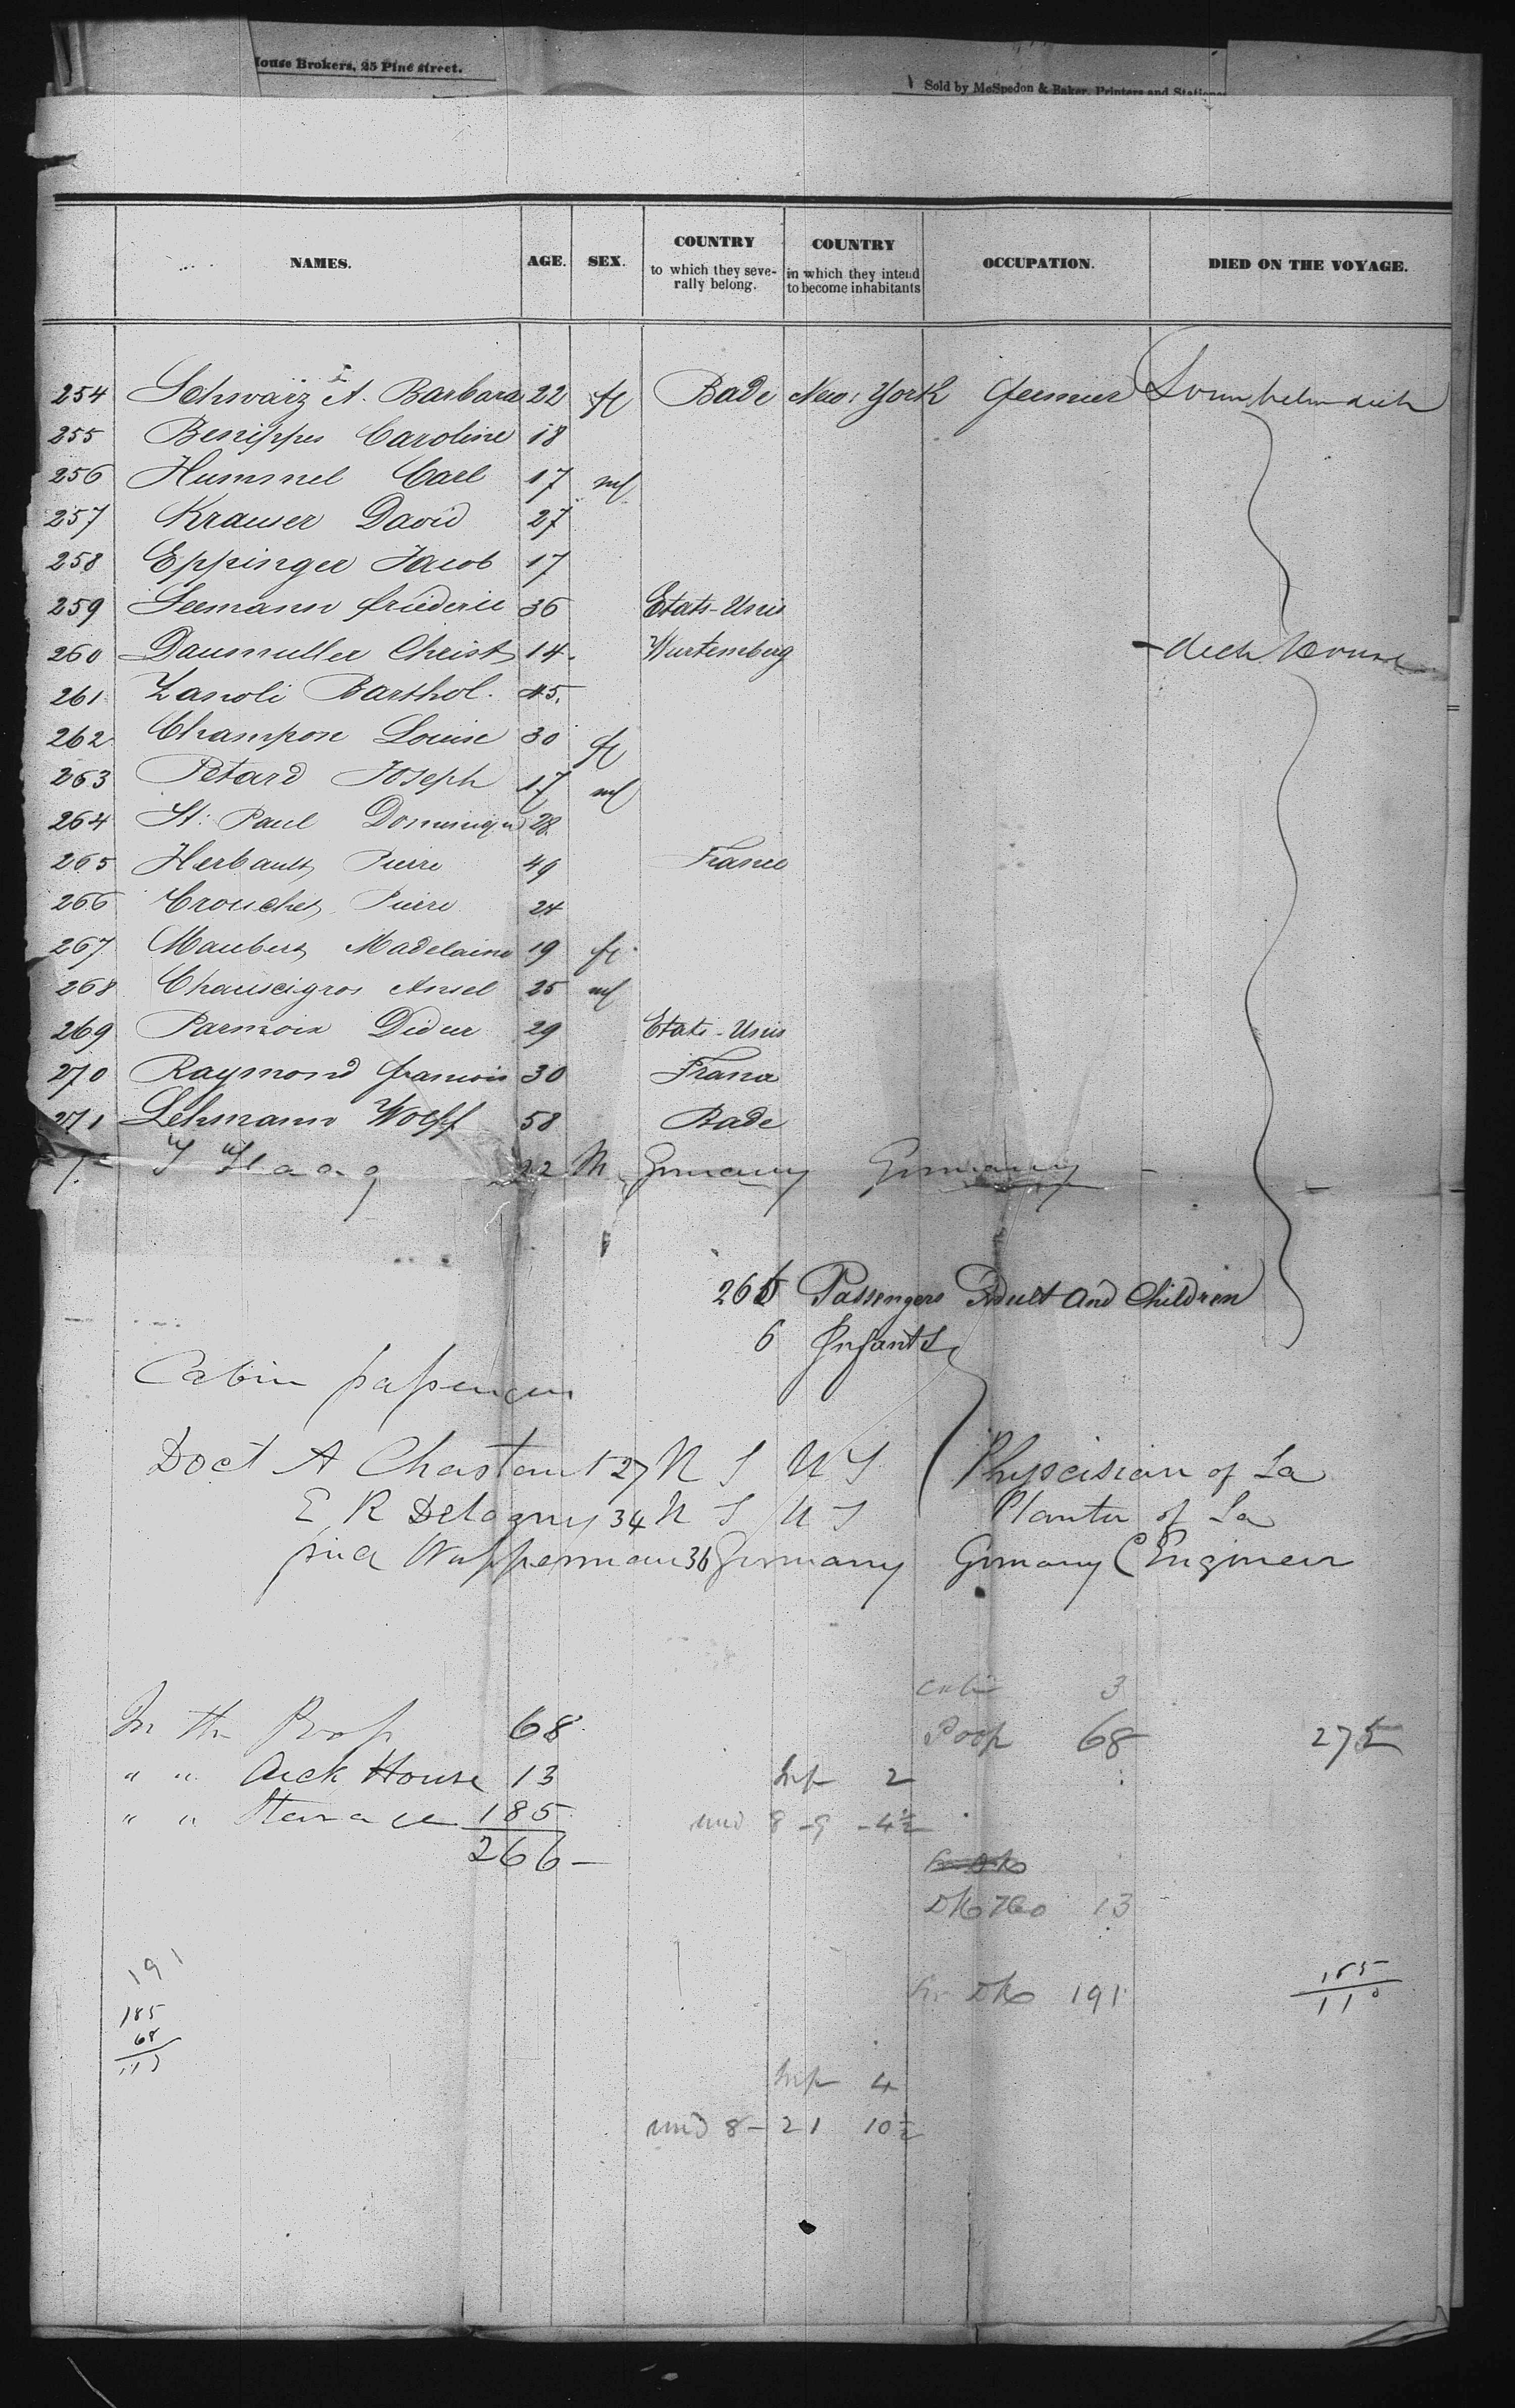 House Brokers, 25 Pine street.
Sold by McSpedon & Baker, Printers and Stationers
NAMES. AGE. SEX. COUNTRY to which they severally belong. COUNTRY in which they intend to become inhabitants OCCUPATION. DIED ON THE VOYAGE.
254 Schwarz A. Barbara 22 f Bade New York
255 Benippes Caroline 18
256 Hummel Carl 17 m
257 Krauser David 27
258 Eppinger Jacob 17
259 Seemann friederic 36 Etats-Unis
260 Daumuller Christ 14. Wurtemberg - deck house
261 Zanoli Barthol. 45.
262 Champon Louise 30 f
263 Petard Joseph 17 m
264 St: Paul Dominique 28.
265 Herbault Pierre 49 France
266 Crouchet Pierre 24
267 Maubert Madelaine 19 f
268 Chauscigros Ansel 25 m
269 Parmoix Didier 29 Etats-Unis
270 Raymond francois 30 France
271 Lehmann Wolff 58 Bade
Haag 22 M Germany Germany
266 Passengers Adult and Children
6 Infants
Cabin passengers
Doct A Chastant 27 U S U S Physcisian of La
E R Delagny 34 U S U S Planter of La
Wupperman 36 Germany Germany C Engineer
Cabin 3
In the Poop 68 Poop 68 275
" " Deck House 13 Inf 2
" " Steerage 185 und 8 - 9 - 4½
266
Dk Ho 13
191
Dk 191 165
185 110
68
Inf 4
und 8 - 21 10½